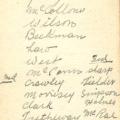 McCollons
Wilson
Beekman
Law
West
McCann Sharp
Crowley Fielder
Morrisey Simpson
Clark Holmes
Trethaway McRae